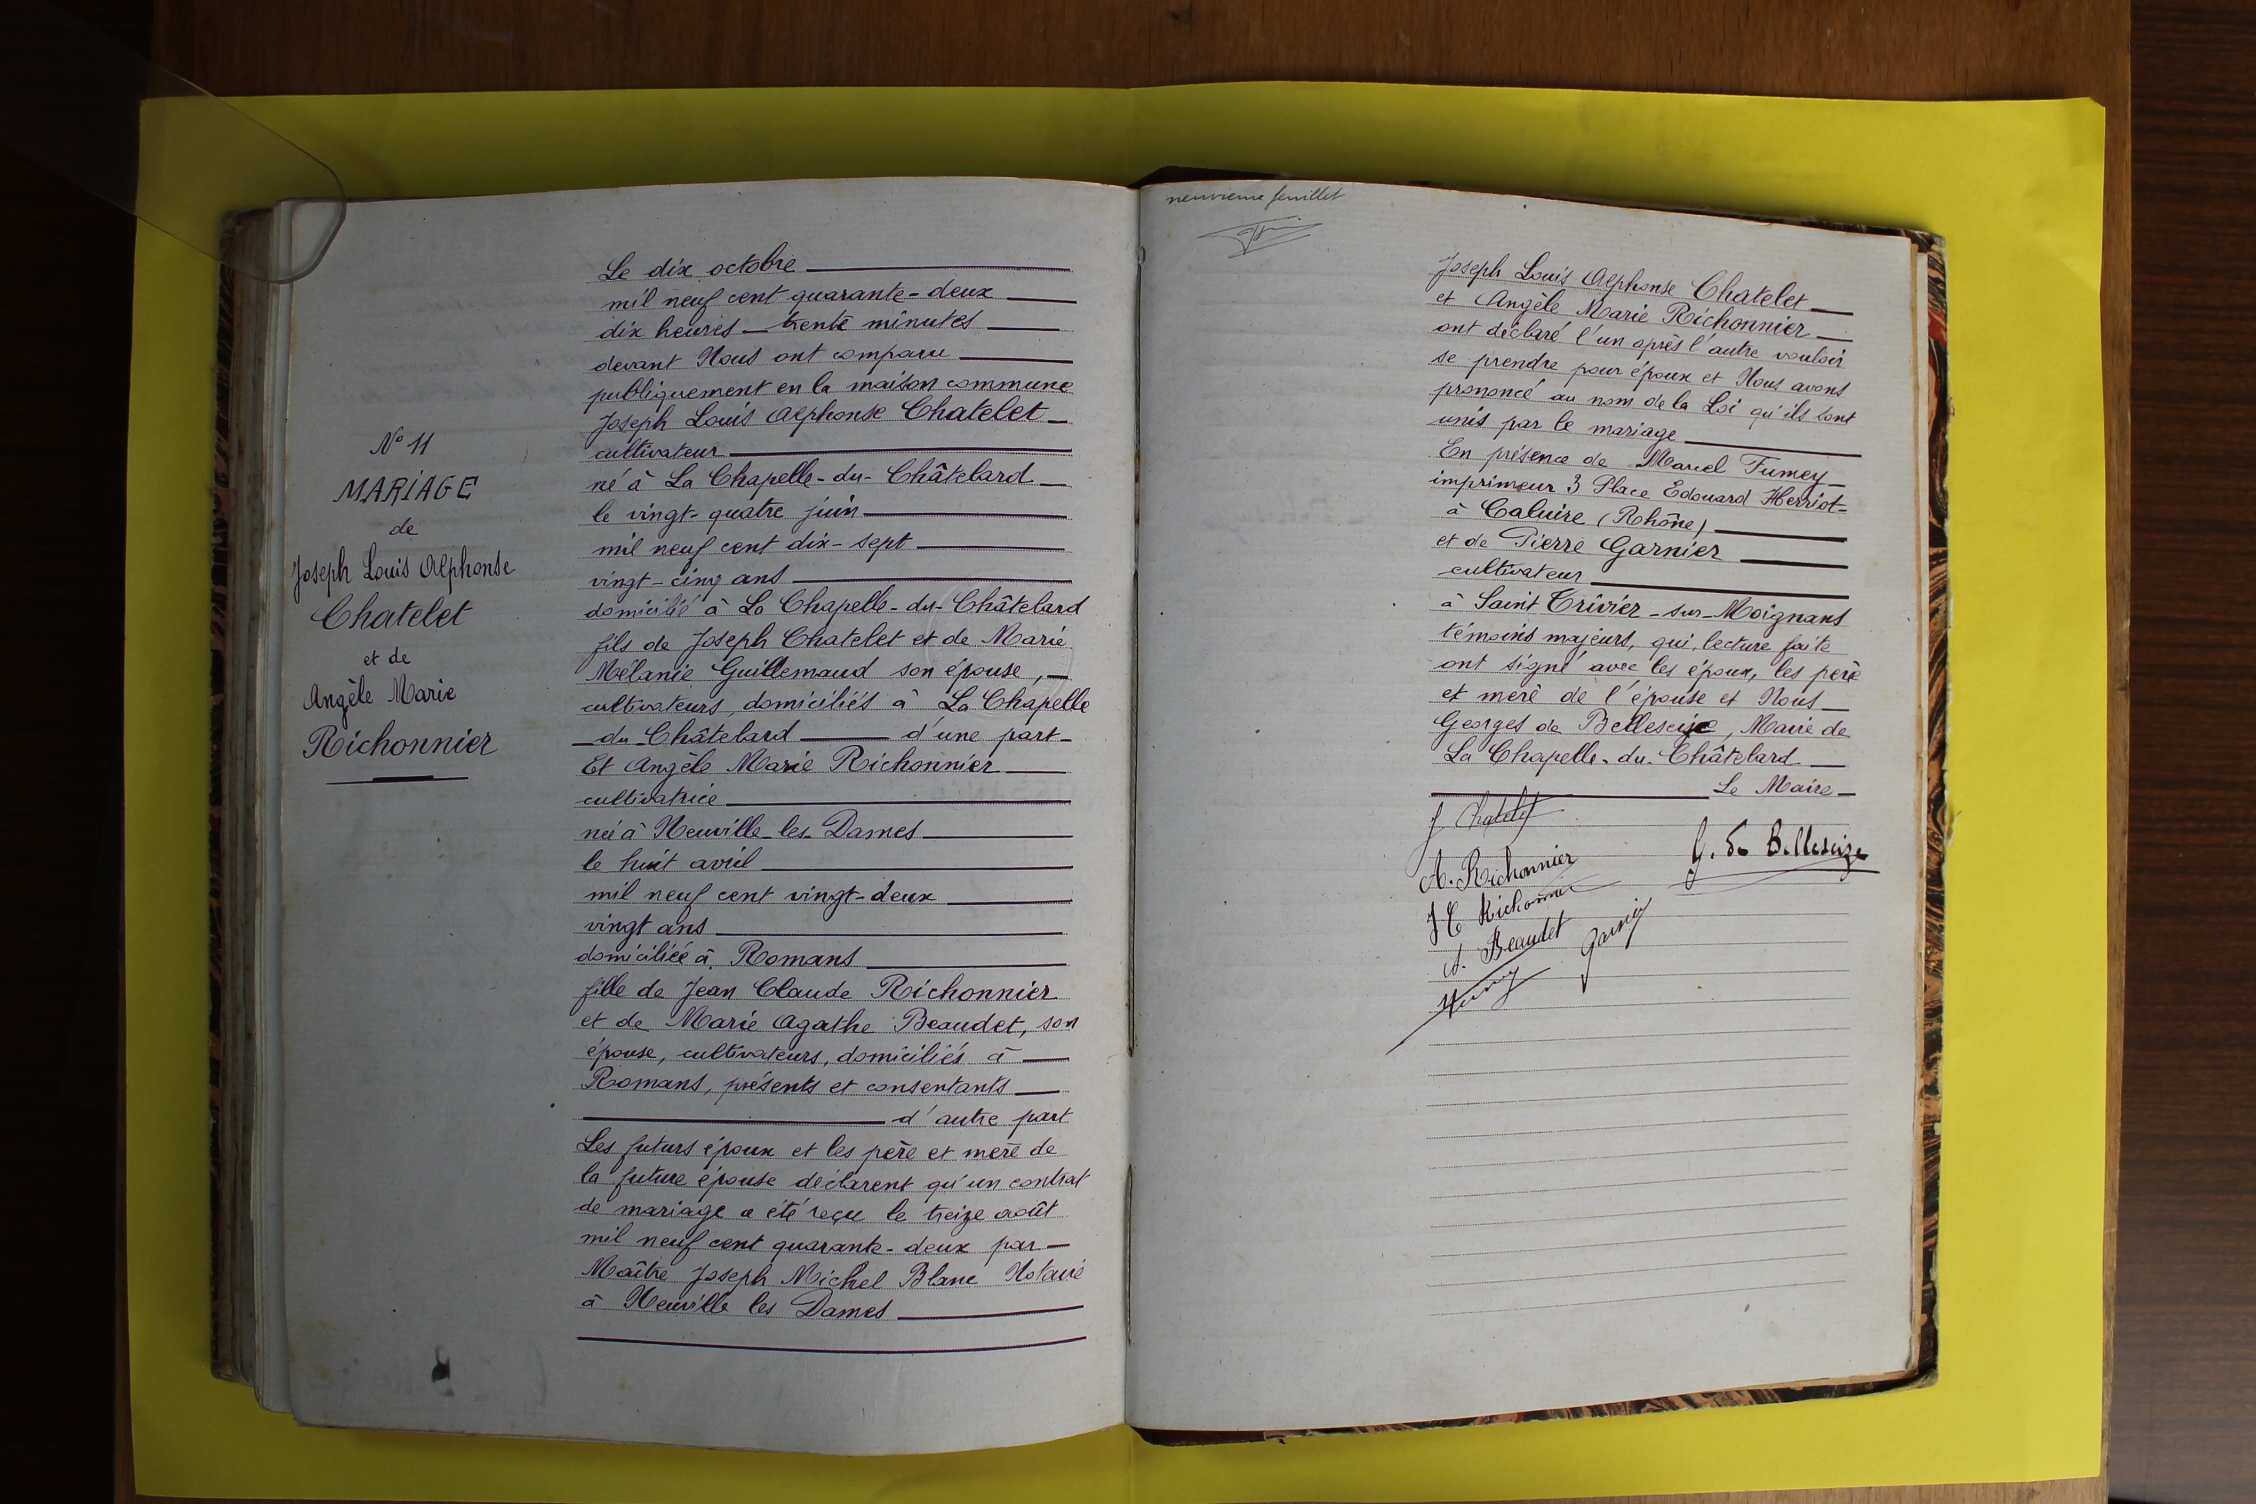 N° 11
MARIAGE
de
Joseph Louis Alphonse
Chatelet
et de
Angèle Marie
Richonnier
Le dix octobre
mil neuf cent quarante-deux
dix heures trente minutes
devant Nous ont comparu
publiquement en la maison commune
Joseph Louis Alphonse Chatelet
cultivateur
né à La Chapelle-du-Châtelard
le vingt-quatre juin
mil neuf cent dix-sept
vingt-cinq ans
domicilié à La Chapelle-du-Châtelard
fils de Joseph Chatelet et de Marie
Mélanie Guillemaud son épouse,
cultivateurs, domiciliés à La Chapelle
-du-Châtelard d'une part
Et Angèle Marie Richonnier
cultivatrice
née à Neuville-les-Dames
le huit avril
mil neuf cent vingt-deux
vingt ans
domiciliée à Romans
fille de Jean Claude Richonnier
et de Marie Agathe Beaudet, son
épouse, cultivateurs, domiciliés à
Romans, présents et consentants
d'autre part
Les futurs époux et les père et mère de
la future épouse déclarent qu'un contrat
de mariage a été reçu le treize août
mil neuf cent quarante-deux par
Maître Joseph Michel Blanc Notaire
à Neuville les Dames
neuvième feuillet
Joseph Louis Alphonse Chatelet
et Angèle Marie Richonnier
ont déclaré l'un après l'autre vouloir
se prendre pour époux et Nous avons
prononcé au nom de la Loi qu'ils sont
unis par le mariage
En présence de Marcel Fumey
imprimeur 3 Place Edouard Herriot
à Caluire (Rhône)
et de Pierre Garnier
cultivateur
à Saint Trivier-sur-Moignans
témoins majeurs, qui, lecture faite
ont signé avec les époux, les père
et mère de l'épouse et Nous
Georges de Bellescize, Maire de
La Chapelle-du-Châtelard
Le Maire
J. Chatelet
A. Richonnier
G. de Bellescize
J C Richonnier
A. Beaudet
Garnier
Fumey